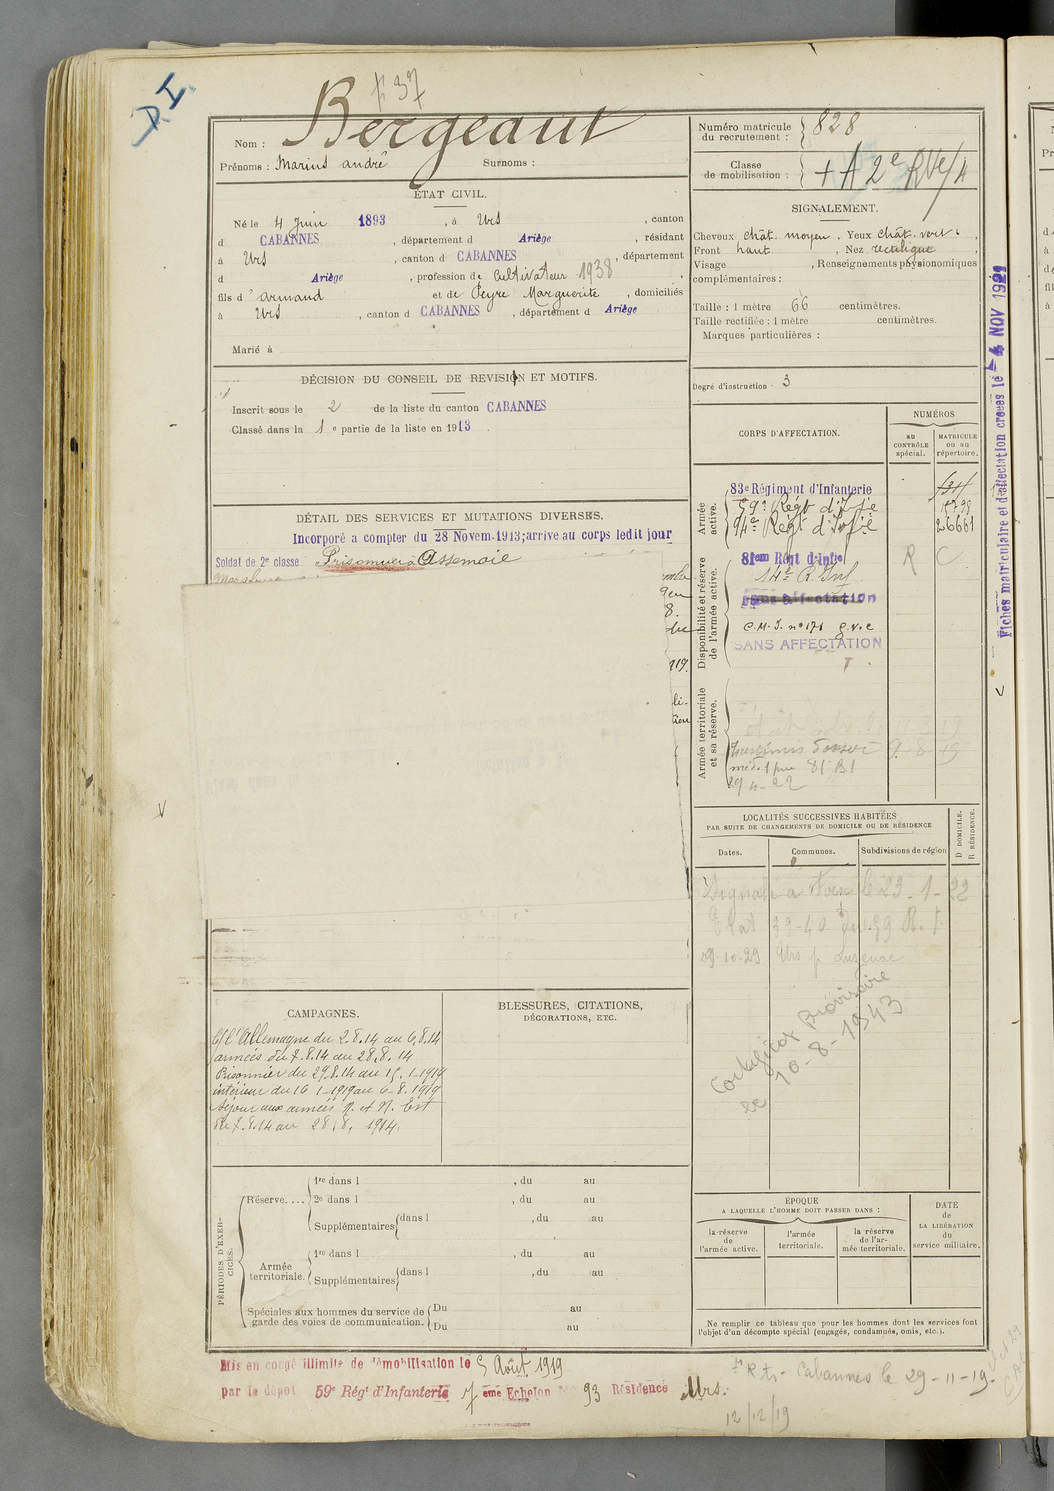 P.I.
Nom : Bergeaut
Prénoms : Marius andré Surnoms :
ÉTAT CIVIL.
Né le 4 Juin 1893, à Urs, canton
d CABANNES, département d Ariège, résidant
à Urs, canton d CABANNES, département
d Ariège, profession de Cultivateur 1938,
fils d'armand et de Peyre Marguerite, domiciliés
à Urs, canton d CABANNES, département d Ariège
Marié à
DÉCISION DU CONSEIL DE REVISION ET MOTIFS.
Inscrit sous le 2 de la liste du canton CABANNES
Classé dans la 1e partie de la liste en 1913.
DÉTAIL DES SERVICES ET MUTATIONS DIVERSES.
Incorporé a compter du 28 Novem. 1913; arrive au corps ledit jour
Soldat de 2e classe
CAMPAGNES.
C/ l'Allemagne du 2.8.14 au 6.8.14
armées du 7.8.14 au 28.8.14
Prisonnier du 29.8.14 au 15.1.1919
intérieur du 16-1-1919 au 6-8.1919
Séjour aux armées N. et N. Est
du 7.8.14 au 28.8.1914.
BLESSURES, CITATIONS,
DÉCORATIONS, ETC.
PÉRIODES D'EXERCICES.
Réserve....
1re dans l , du au
2e dans l , du au
Supplémentaires dans l , du au
Armée territoriale.
1re dans l , du au
Supplémentaires dans l , du au
Spéciales aux hommes du service de garde des voies de communication.
Du au
Du au
Mis en congé illimité de démobilisation le 5 Août 1919
par le dépôt 59e Régt d'Infanterie 7 eme Echelon No 93 Résidence Urs.
Numéro matricule du recrutement : 828
Classe de mobilisation :
SIGNALEMENT.
Cheveux chât. moyen, Yeux chât. vert,
Front haut, Nez rectiligne,
Visage , Renseignements physionomiques
complémentaires :
Taille : 1 mètre 66 centimètres.
Taille rectifiée : 1 mètre centimètres.
Marques particulières :
Degré d'instruction 3
CORPS D'AFFECTATION.
NUMÉROS
au CONTRÔLE spécial.
MATRICULE ou au répertoire.
Armée active.
83e Régiment d'Infanterie
59e Régt d'Infie
14e Régt d'Infie 26661
Disponibilité et réserve de l'armée active.
81em Régt d'Infie
14e R. Inf
Sans Affectation
C.M.I. no 171 G.V.C
SANS AFFECTATION
R C
Armée territoriale et sa réserve.
Fiches matriculaire et d'affectation créées le -4 NOV 1921
LOCALITÉS SUCCESSIVES HABITÉES
PAR SUITE DE CHANGEMENTS DE DOMICILE OU DE RÉSIDENCE
Dates.
Communes.
Subdivisions de région
D DOMICILE.
R RÉSIDENCE.
29-10-29 Urs p Luzenac
Provisoire
le 10-8-1943
ÉPOQUE
A LAQUELLE L'HOMME DOIT PASSER DANS :
la réserve de l'armée active.
l'armée territoriale.
la réserve de l'armée territoriale.
DATE de LA LIBÉRATION du service militaire.
Ne remplir ce tableau que pour les hommes dont les services font
l'objet d'un décompte spécial (engagés, condamnés, omis, etc.).
Cabannes le 29-11-19
12/12/19